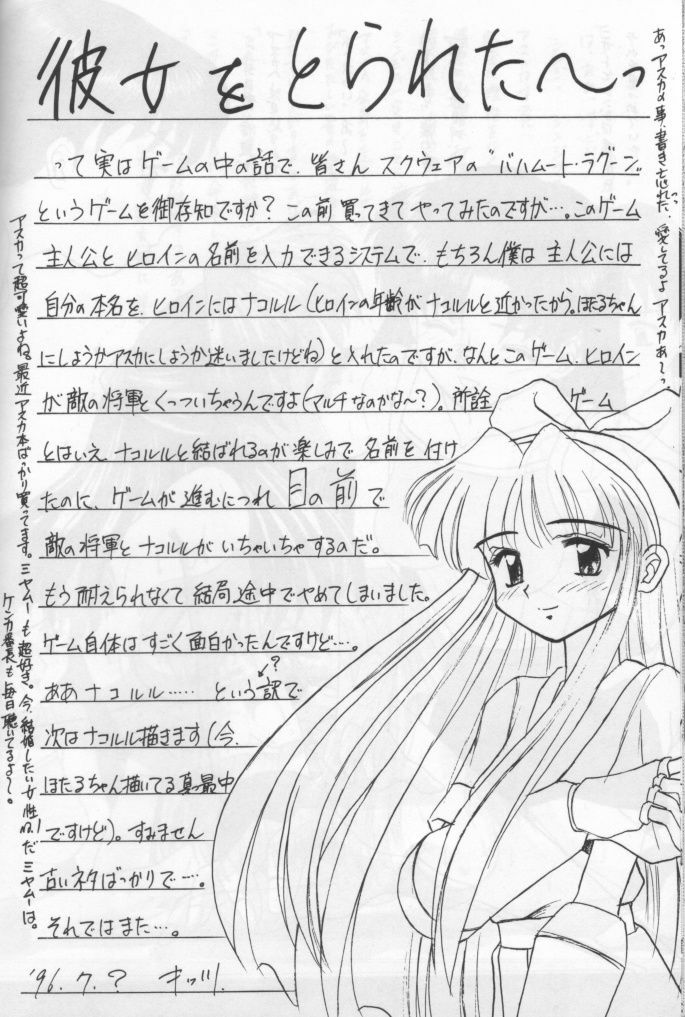 彼女をとられた〜っ
って実はゲームの中の話で、皆さんスクウェアの“バハムート・ラグーン”
というゲームを御存知ですか？この前買ってきてやってみたのですが…。このゲーム
主人公とヒロインの名前を入力できるシステムで、もちろん僕は主人公には
自分の本名を、ヒロインにはナコルル（ヒロインの年齢がナコルルと近かったから。ほたるちゃん
にしようかアスカにしようか迷いましたけどね）と入れたのですが、なんとこのゲーム、ヒロイン
が敵の将軍とくっついちゃうんですよ（マルチなのかな〜？）。所詮 ゲーム
とはいえ、ナコルルと結ばれるのが楽しみで名前を付け
たのに、ゲームが進むにつれ目の前で
敵の将軍とナコルルがいちゃいちゃするのだ。
もう耐えられなくて結局途中でやめてしまいました。
ゲーム自体はすごく面白かったんですけど…。
ああナコルル…… という訳で
？
次はナコルル描きます（今、
ほたるちゃん描いてる真最中
ですけど）。すみません
古いネタばっかりで…。
それではまた…。
'96.7.？
あっアスカの事、書き忘れたっっ 愛してるよアスカぁ〜っ
アスカって超可愛いよね。最近アスカ本ばっかり買ってます。ミヤムーも超好き。今、結婚したい女性No.1だミヤムーは。
ケンカ番長も毎日聴いてるよ〜。